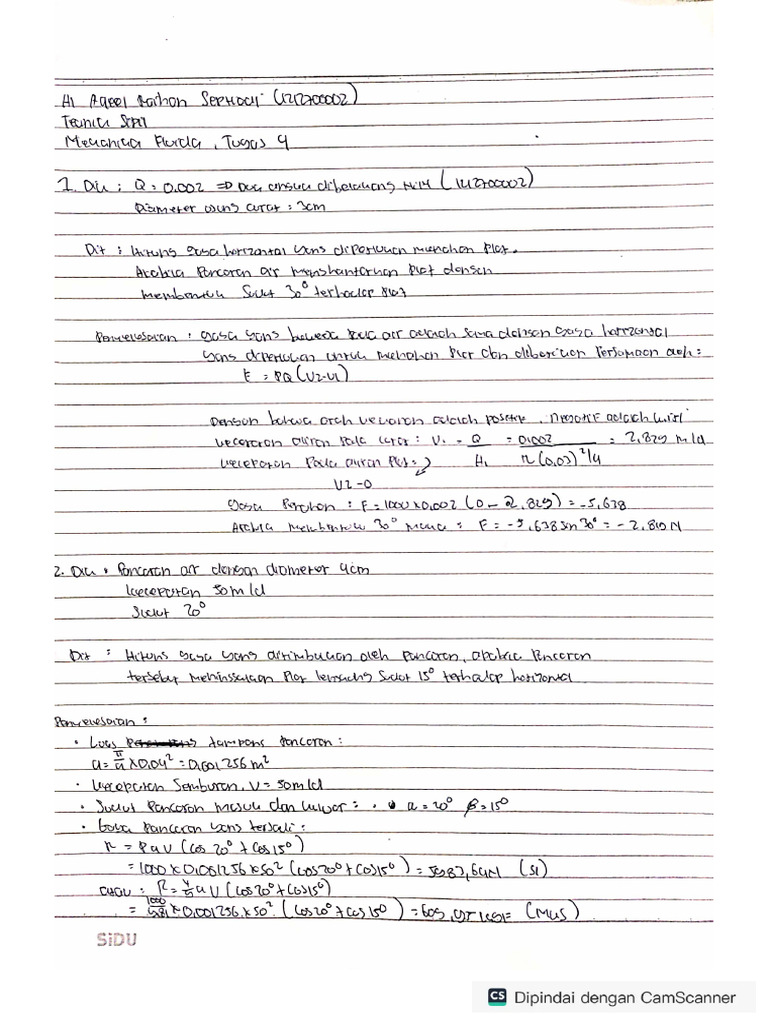 Tugas 4
1. Dik : Q = 0.002 => Dua angka dibelakang NIM (1212700002)
Diameter ujung curat : 3cm
Dit : Hitung gaya horizontal yang diperlukan menahan Plat.
Apabila Pancaran air menghantarkan Plat dengan
membentuk Sudut 30° terhadap Plat
Penyelesaian : gaya yang bekerja Pada air adalah sama dengan gaya horizontal
yang diperlukan untuk menahan Plat dan diberikan Persamaan oleh :
F = ρQ (V2-V1)
Dengan bahwa arah ke kanan adalah positif . Negatif adalah kiri
kecepatan aliran pada curat : V1 = Q = 0.002 = 2,829 m/d
kecepatan Pada aliran Plat = A1 π(0,03)²/4
V2 = 0
gaya Penahan : F = 1000 x 0,002 (0 - 2,829) = -5,638
Apabila membentuk 30° maka : F = -5,638 sin 30° = -2,819 N
2. Dik : Pancaran air dengan diameter 4cm
kecepatan 50 m/d
Sudut 20°
Dit : Hitung gaya yang ditimbulkan oleh pancaran, apabila Pancaran
tersebut meninggalkan Plat lengkung Sudut 15° terhadap horizontal
Penyelesaian :
• Luas tampang Pancaran :
a = π/4 x 0.04² = 0,001256 m²
• kecepatan Semburan, V = 50 m/d
• Sudut Pancaran masuk dan keluar : α = 20° β = 15°
• Gaya Pancaran yang terjadi :
R = ρ a V (cos 20° + cos 15°)
= 1000 x 0,001256 x 50² (cos 20° + cos 15°) = 5983,64N (SI)
atau : R = γ/g a V (cos 20° + cos 15°)
= 1000/9.81 x 0,001256 x 50² (cos 20° + cos 15°) = (MKS)
SiDU
CS Dipindai dengan CamScanner